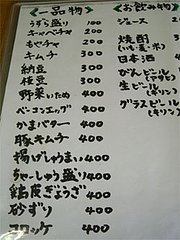 一品物
うすら盛り 100
キャベチャ 200
もやチャ 200
キムチ 200
納豆 200
枝豆 200
野菜いため 400
ベーコンエッグ 400
かまバター 400
豚キムチ 400
揚げしゅうまい 400
ちゃーしゅう盛り 400
鶏皮ぎょうざ 400
砂ずり 400
コロッケ 400
お飲み物
ジュース
焼酎
(いも・麦・米)
日本酒
びんビール
(アサヒ)
生ビール
(キリン)
グラスビール
(キリン)